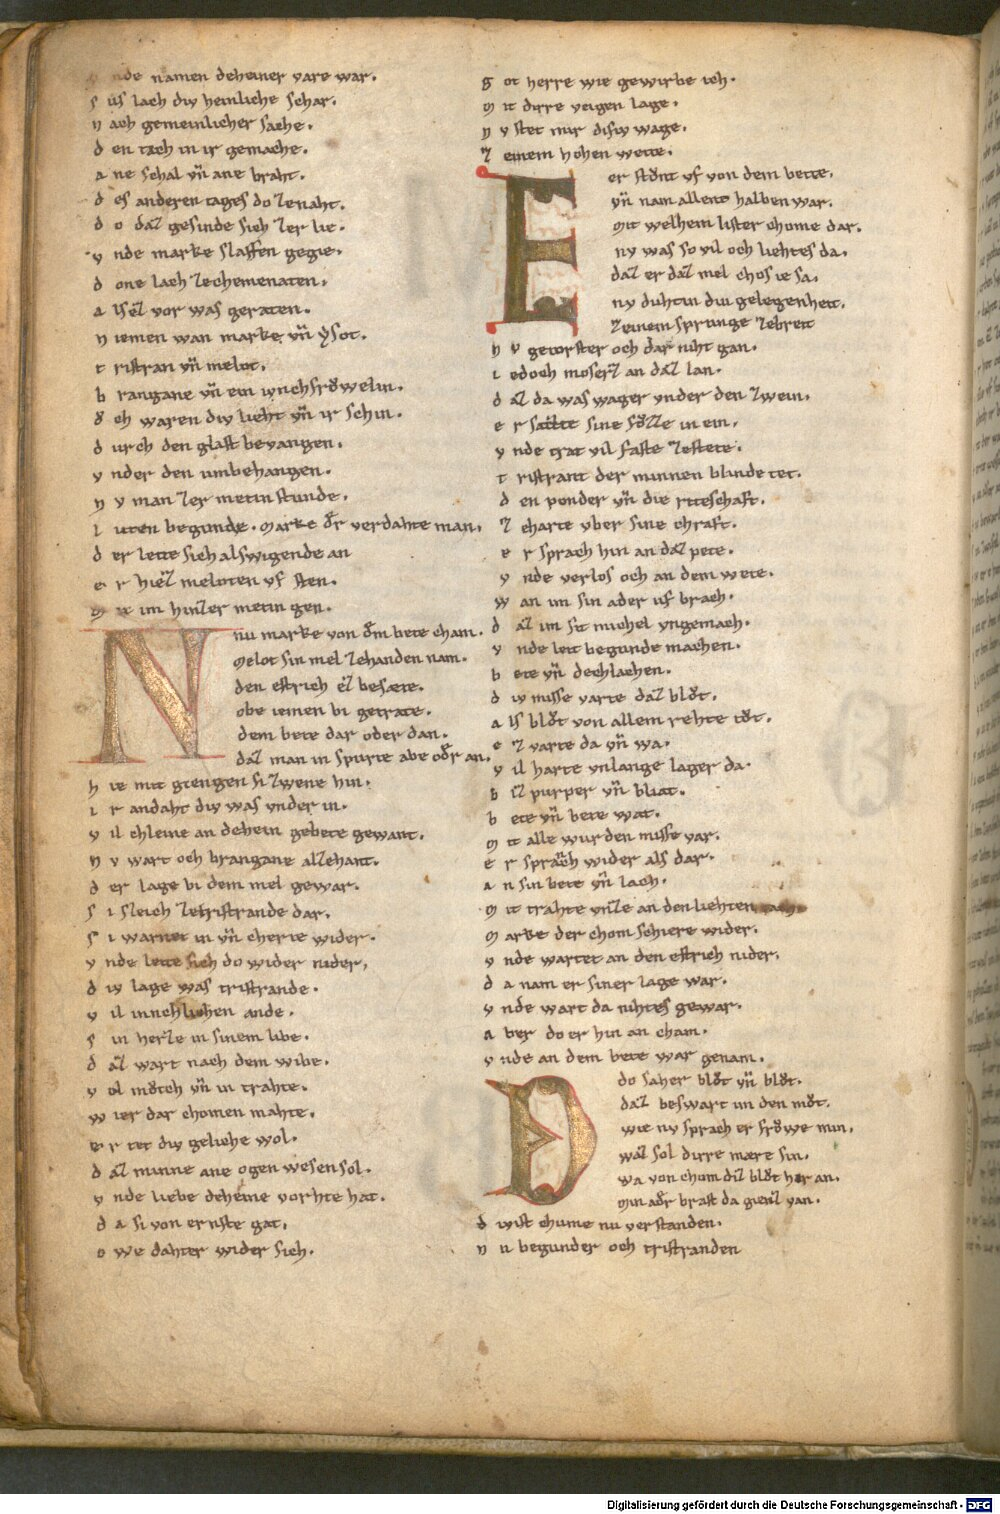 vnde namen deheiner vare war.
s us lach div heinliche schar.
n ach gemeinlicher sache.
d en tach in ir gemache.
a ne schal vn̄ ane braht.
d es anderen tages do zenaht.
d o daz gesinde sich zer lie.
v nde marke slaffen gegie.
d one lach zechemenaten.
a lsez vor was geraten.
n iemen wan marke vn̄ ysot.
t ristran vn̄ melot.
b rangane vn̄ ein ivnchfrowelin.
o͛ch waren div lieht vn̄ ir schin.
d urch den glast bevangen.
v nder den umbehangen.
n v man zer metin stunde.
l uten begunde. marke dr̄ verdahte man.
d er leite sich alswigende an
e r hiez meloten vf sten.
m it im hinzer metin gen.
Nnu marke von dēm bete cham.
melot sin mel zehanden nam.
den estrich ez besæte.
obe iemen bi getrate.
dem bete dar oder dan.
daz man in spurte abe odr̄ an.
h ie mit giengen si zwene hin.
i r andaht div was vnder in.
v il chleine an dehein gebete gewant.
n v wart och brangane alzehant.
d er lage bi dem mel gewar.
s i sleich zetristrande dar.
s i warnet in vn̄ cherte wider.
v nde leite sich do wider nider,
d iv lage was tristrande.
v il innechlichen ande.
s in herze in sinem libe.
d az wart nach dem wibe.
v ol mo͛tch vn̄ in trahte.
w ier dar chomen mahte.
e r tet div geliche wol.
d az minne ane ogen wesen sol.
v nde liebe deheine vorhte hat.
d a si von ernste gat.
o we dahter wider sich.
g ot herre wie gewirbe ich.
m it dirre veigen lage.
n v stet mir disiv wage.
z einem hohen wette.
Eer sto͛nt vf von dem bette.
vn̄ nam allent halben war.
mit welhem lister chome dar.
nv was so vil och liehtes da.
daz er daz mel chos ie sa.
nv duhtin diu gelegenheit.
zeinem sprunge zebreit
n v getorster och dar niht gan.
i edoch moserz an daz lan.
d az da was wager vnder den zwein.
e r satte sine fo͛zze in ein.
v nde trat vil faste zestete.
t ristrant der minnen blinde tet.
d en ponder vn̄ die riteschaft.
z eharte vber sine chraft.
e r sprach hin an daz pete.
v nde verlos och an dem wete.
w an im sin ader uf brach.
d az im sit michel vngemach.
v nde leit begunde machen.
b ete vn̄ dechlachen.
d iv misse varte daz blo͛t.
a ls blo͛t von allem rehte to͛t.
e z varte da vn̄ wa.
v il harte vnlange lager da.
b iz purper vn̄ bliat.
b ete vn̄ bete wat.
m it alle wurden misse var.
e r sprach wider als dar.
a n sin bete vn̄ lach.
m it trahte vnze an den liehten tach.
m arke der chom schiere wider.
v nde wartet an den estrich nider.
d a nam er siner lage war.
v nde wart da nihtes gewar.
a ber do er hin an cham.
v nde an dem bete war genam.
Ddo saher blo͛t vn̄ blo͛t.
daz beswart im den mo͛t.
wie nv sprach er fro͛we min.
waz sol dirre mære sin.
wa von chom diz blo͛t her an.
min adr̄ brast da gienz van.
d ivst chume nu verstanden.
n u begunder och tristranden
Digitalisierung gefördert durch die Deutsche Forschungsgemeinschaft - DFG